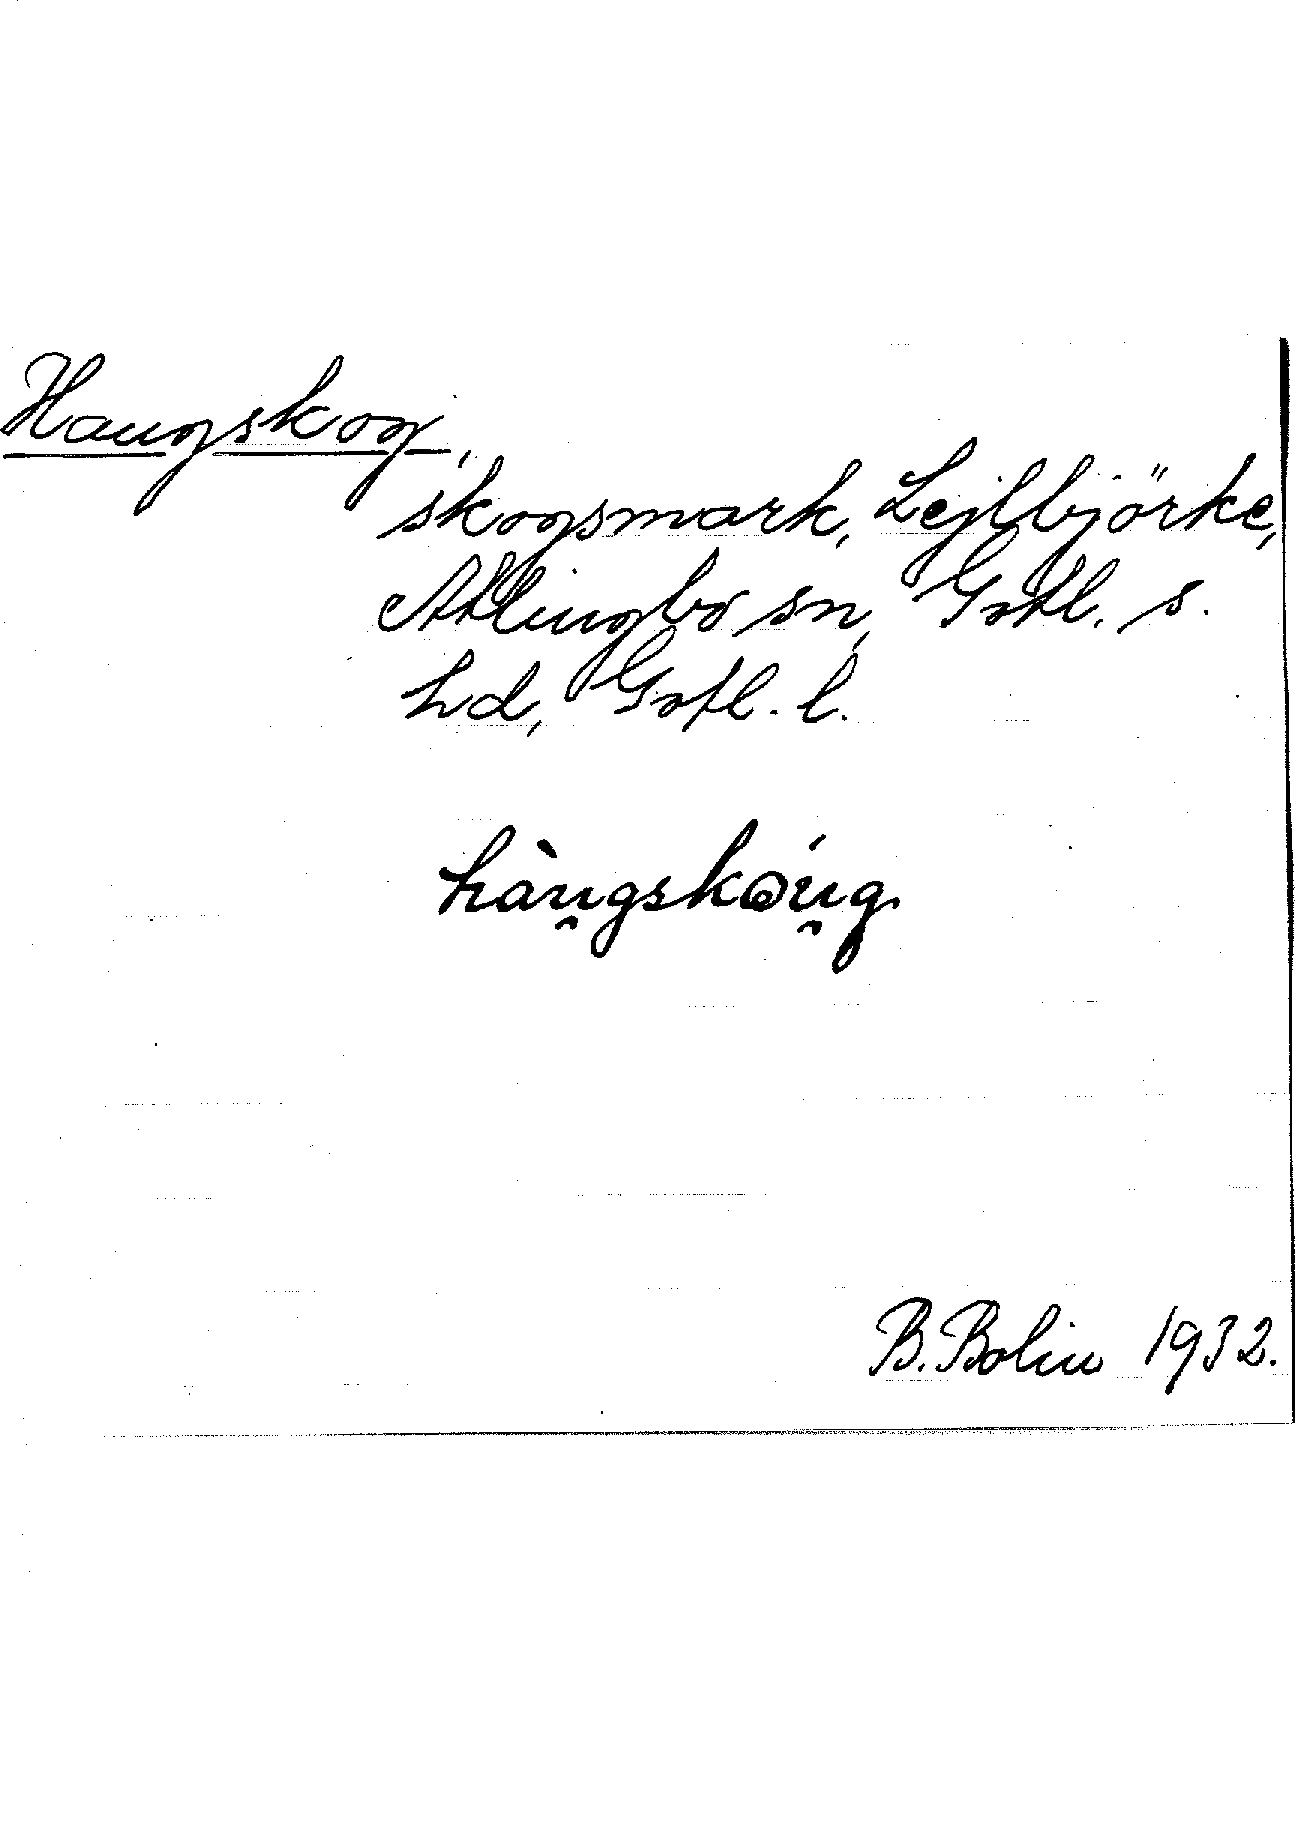 Haugskog,
skogsmark, Lejlbjörke,
Atlingbo sn, Gotl. s.
hd, Gotl. l.
hàu̯gskǫúu̯g.
B. Bolin 1932.